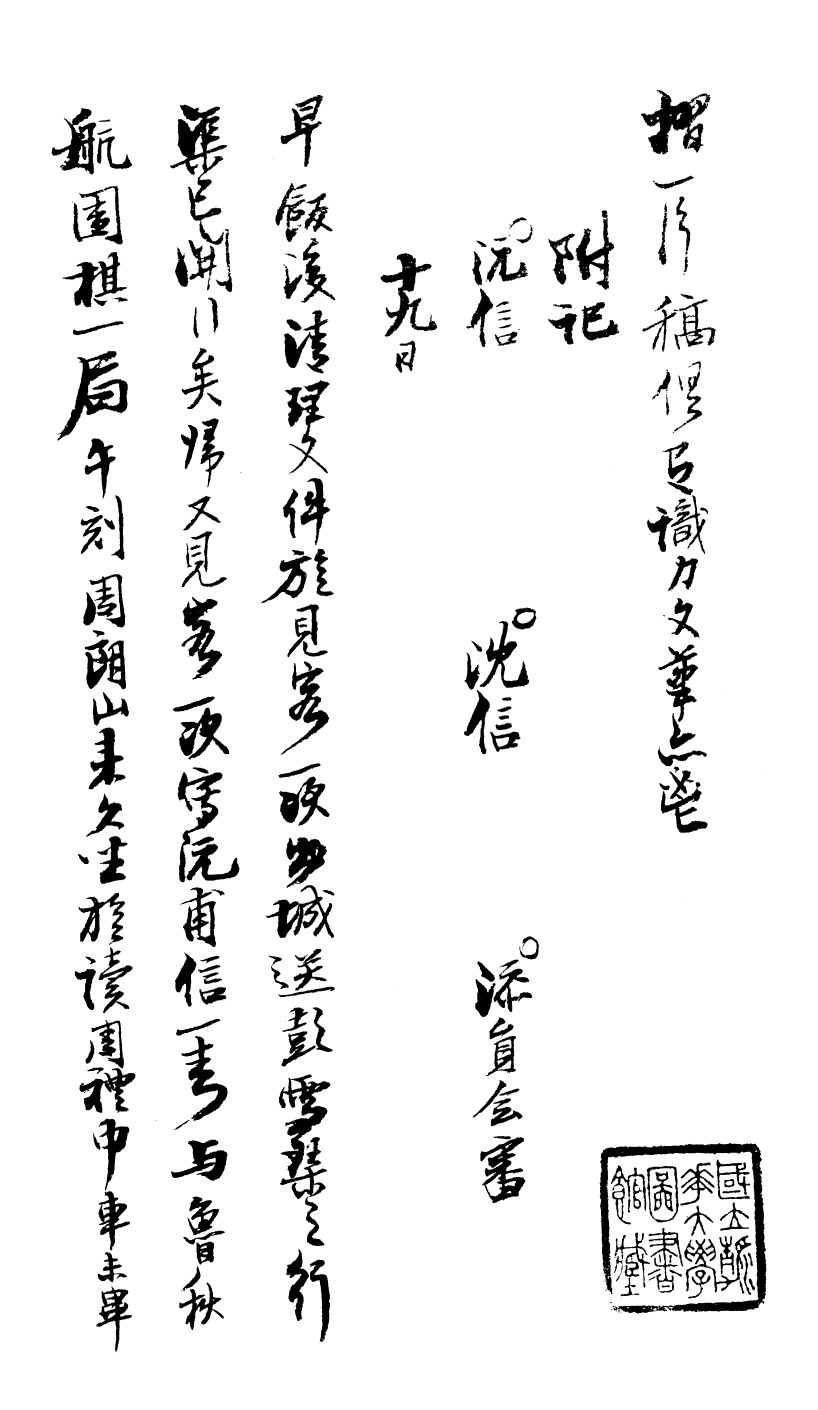 摺一片稿俱有識力文筆亦鬯
附記
沅信 沈信 添員會審
十九日
早飯後清理文件旋見客一次出城送彭雪琴之行
渠已開行矣歸又見客一次寫沅甫信一封与魯秋
航圍棋一局午刻周朗山来久坐旋讀周禮巾車未畢
國立清華大學圖書館藏